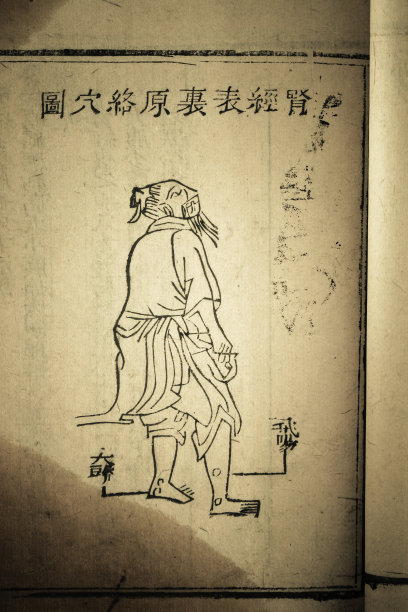 腎經表裏原絡穴圖
飛陽
太谿